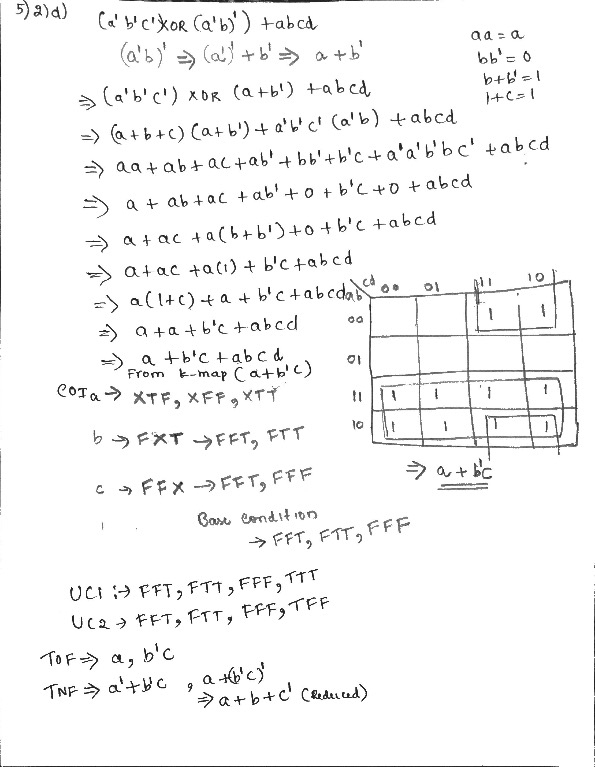 5) 2) d) (a'b'c') XOR (a'b)') + abcd
(a'b)' ⇒ (a')' + b' ⇒ a + b'
aa = a
bb' = 0
b + b' = 1
1 + c = 1
⇒ (a'b'c') XOR (a+b') + abcd
⇒ (a+b+c) (a+b') + a'b'c' (a'b) + abcd
⇒ aa + ab + ac + ab' + bb' + b'c + a'a'b'bc' + abcd
⇒ a + ab + ac + ab' + 0 + b'c + 0 + abcd
⇒ a + ac + a(b+b') + 0 + b'c + abcd
⇒ a + ac + a(1) + b'c + abcd
⇒ a(1+c) + a + b'c + abcd
⇒ a + a + b'c + abcd
⇒ a + b'c + abcd
From k-map (a + b'c)
ab cd 00 01 11 10
00 1 1
01
11 1 1 1 1
10 1 1 1 1
⇒ a + b'c
COI a → XTF, XFF, XTT
b → FXT → FFT, FTT
c → FFX → FFT, FFF
Base condition
→ FFT, FTT, FFF
UC1 :→ FFT, FTT, FFF, TTT
UC2 → FFT, FTT, FFF, TFF
TOF ⇒ a, b'c
TNF ⇒ a' + b'c , a + (b'c)'
⇒ a + b + c' (Reduced)